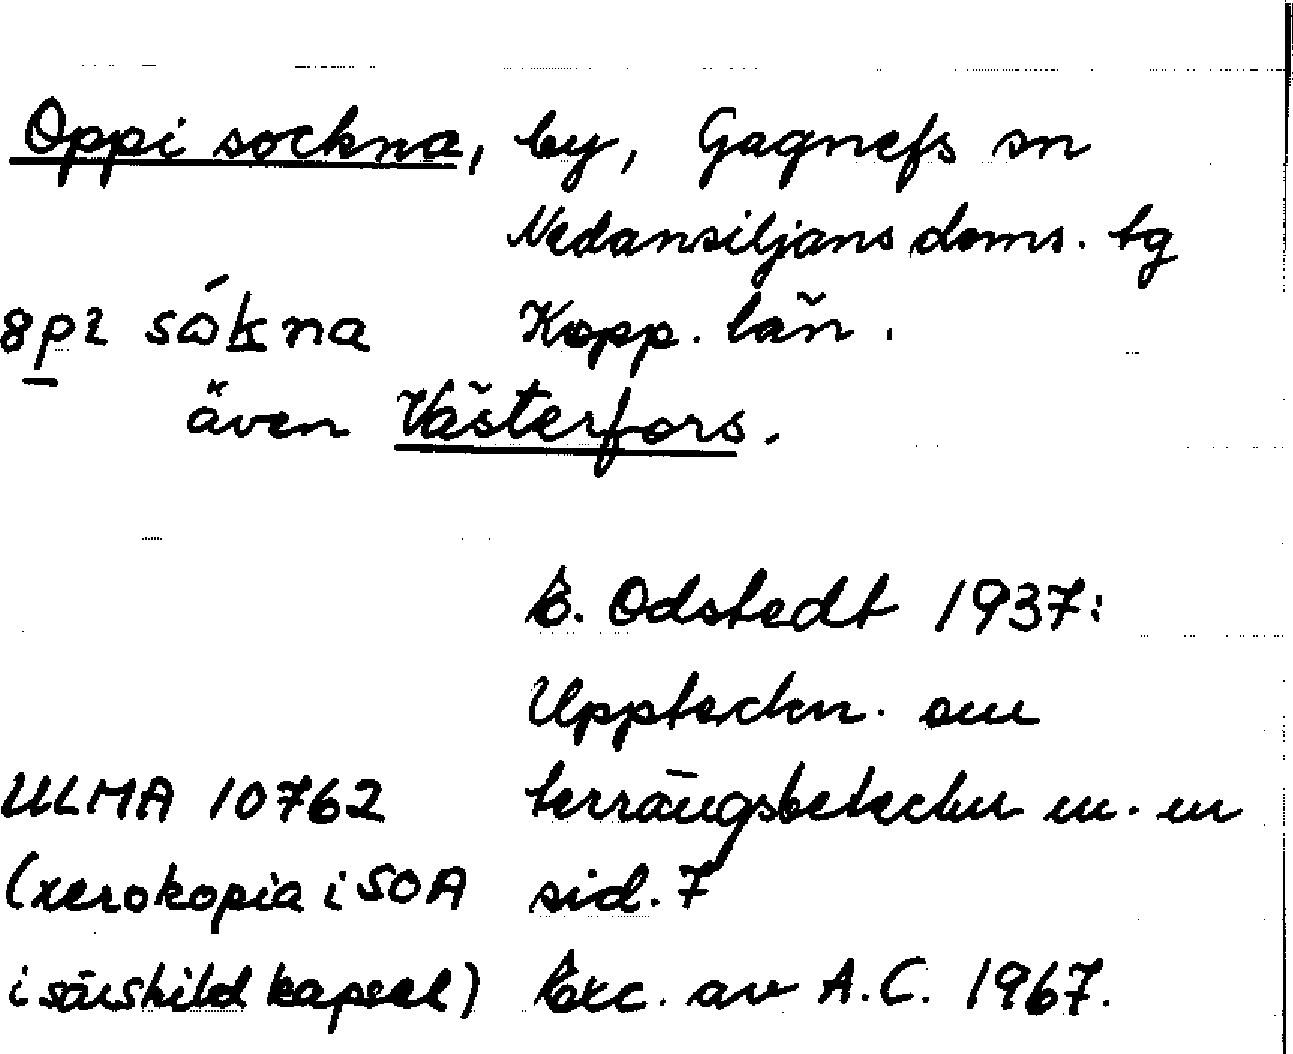 Oppi sockna, by, Gagnefs sn
Nedansiljans doms. tg
8p2 sókna Kopp. län.
även Västerfors.
E. Odstedt 1937:
Uppteckn. om
ULMA 10762 terrängsbeteckn m. m
(xerokopia i SOA sid. 7
i särskild kapsel) Exc. av A.C. 1967.